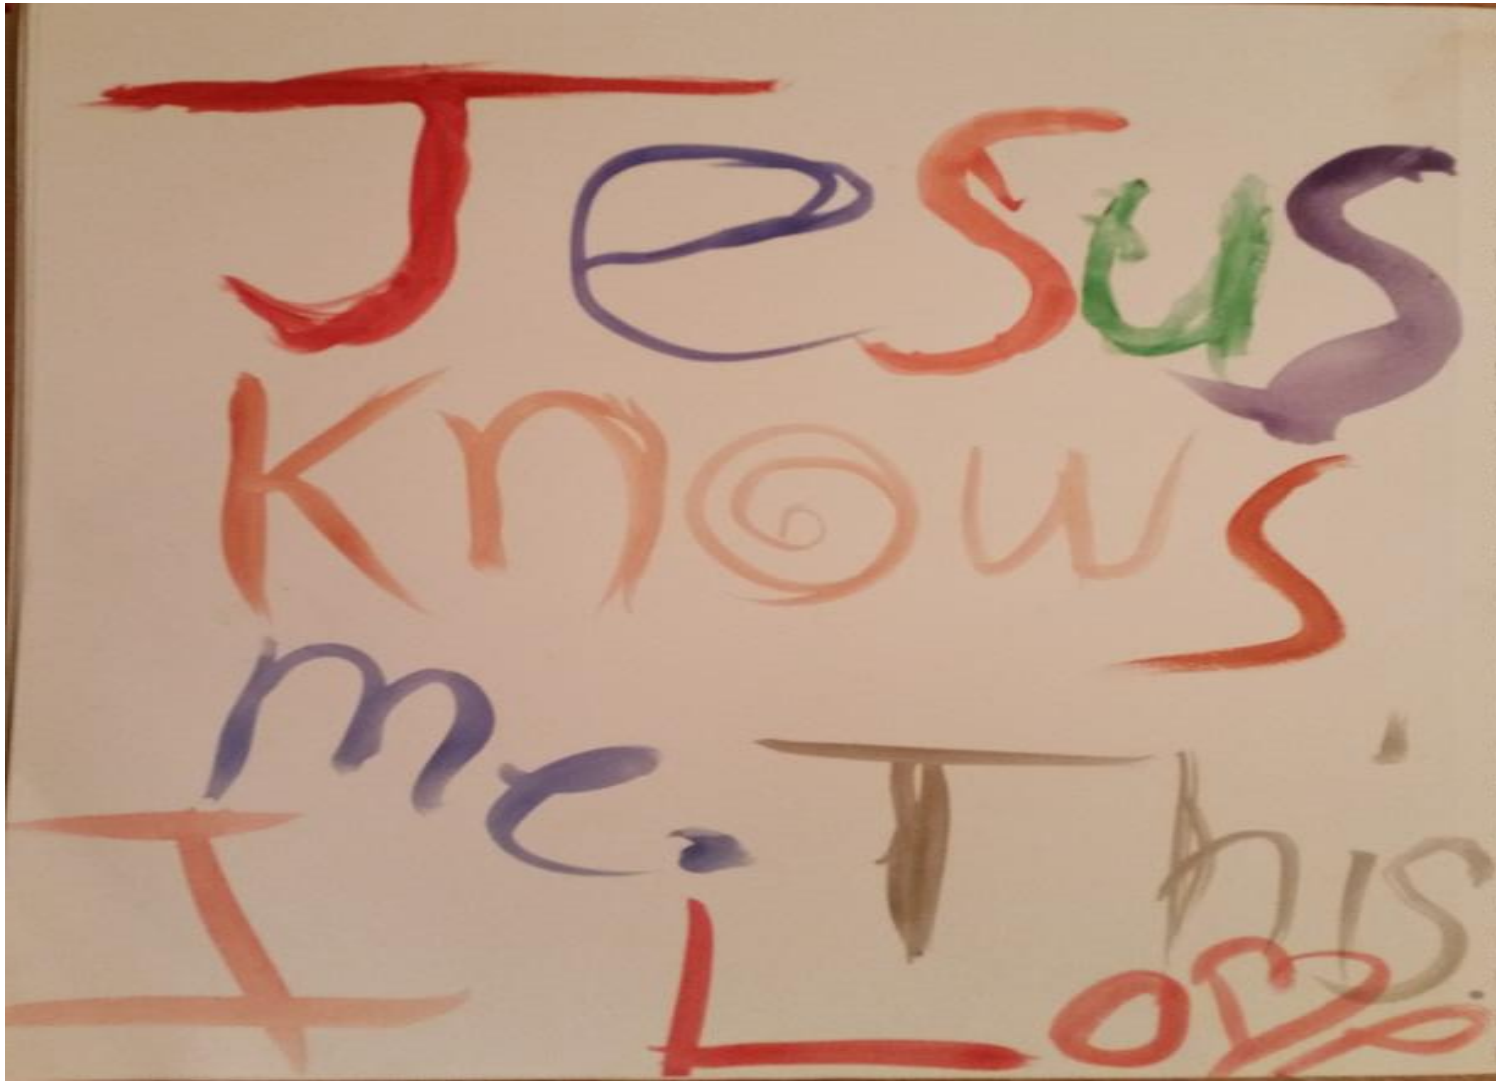 Jesus
knows
me. This
I Love